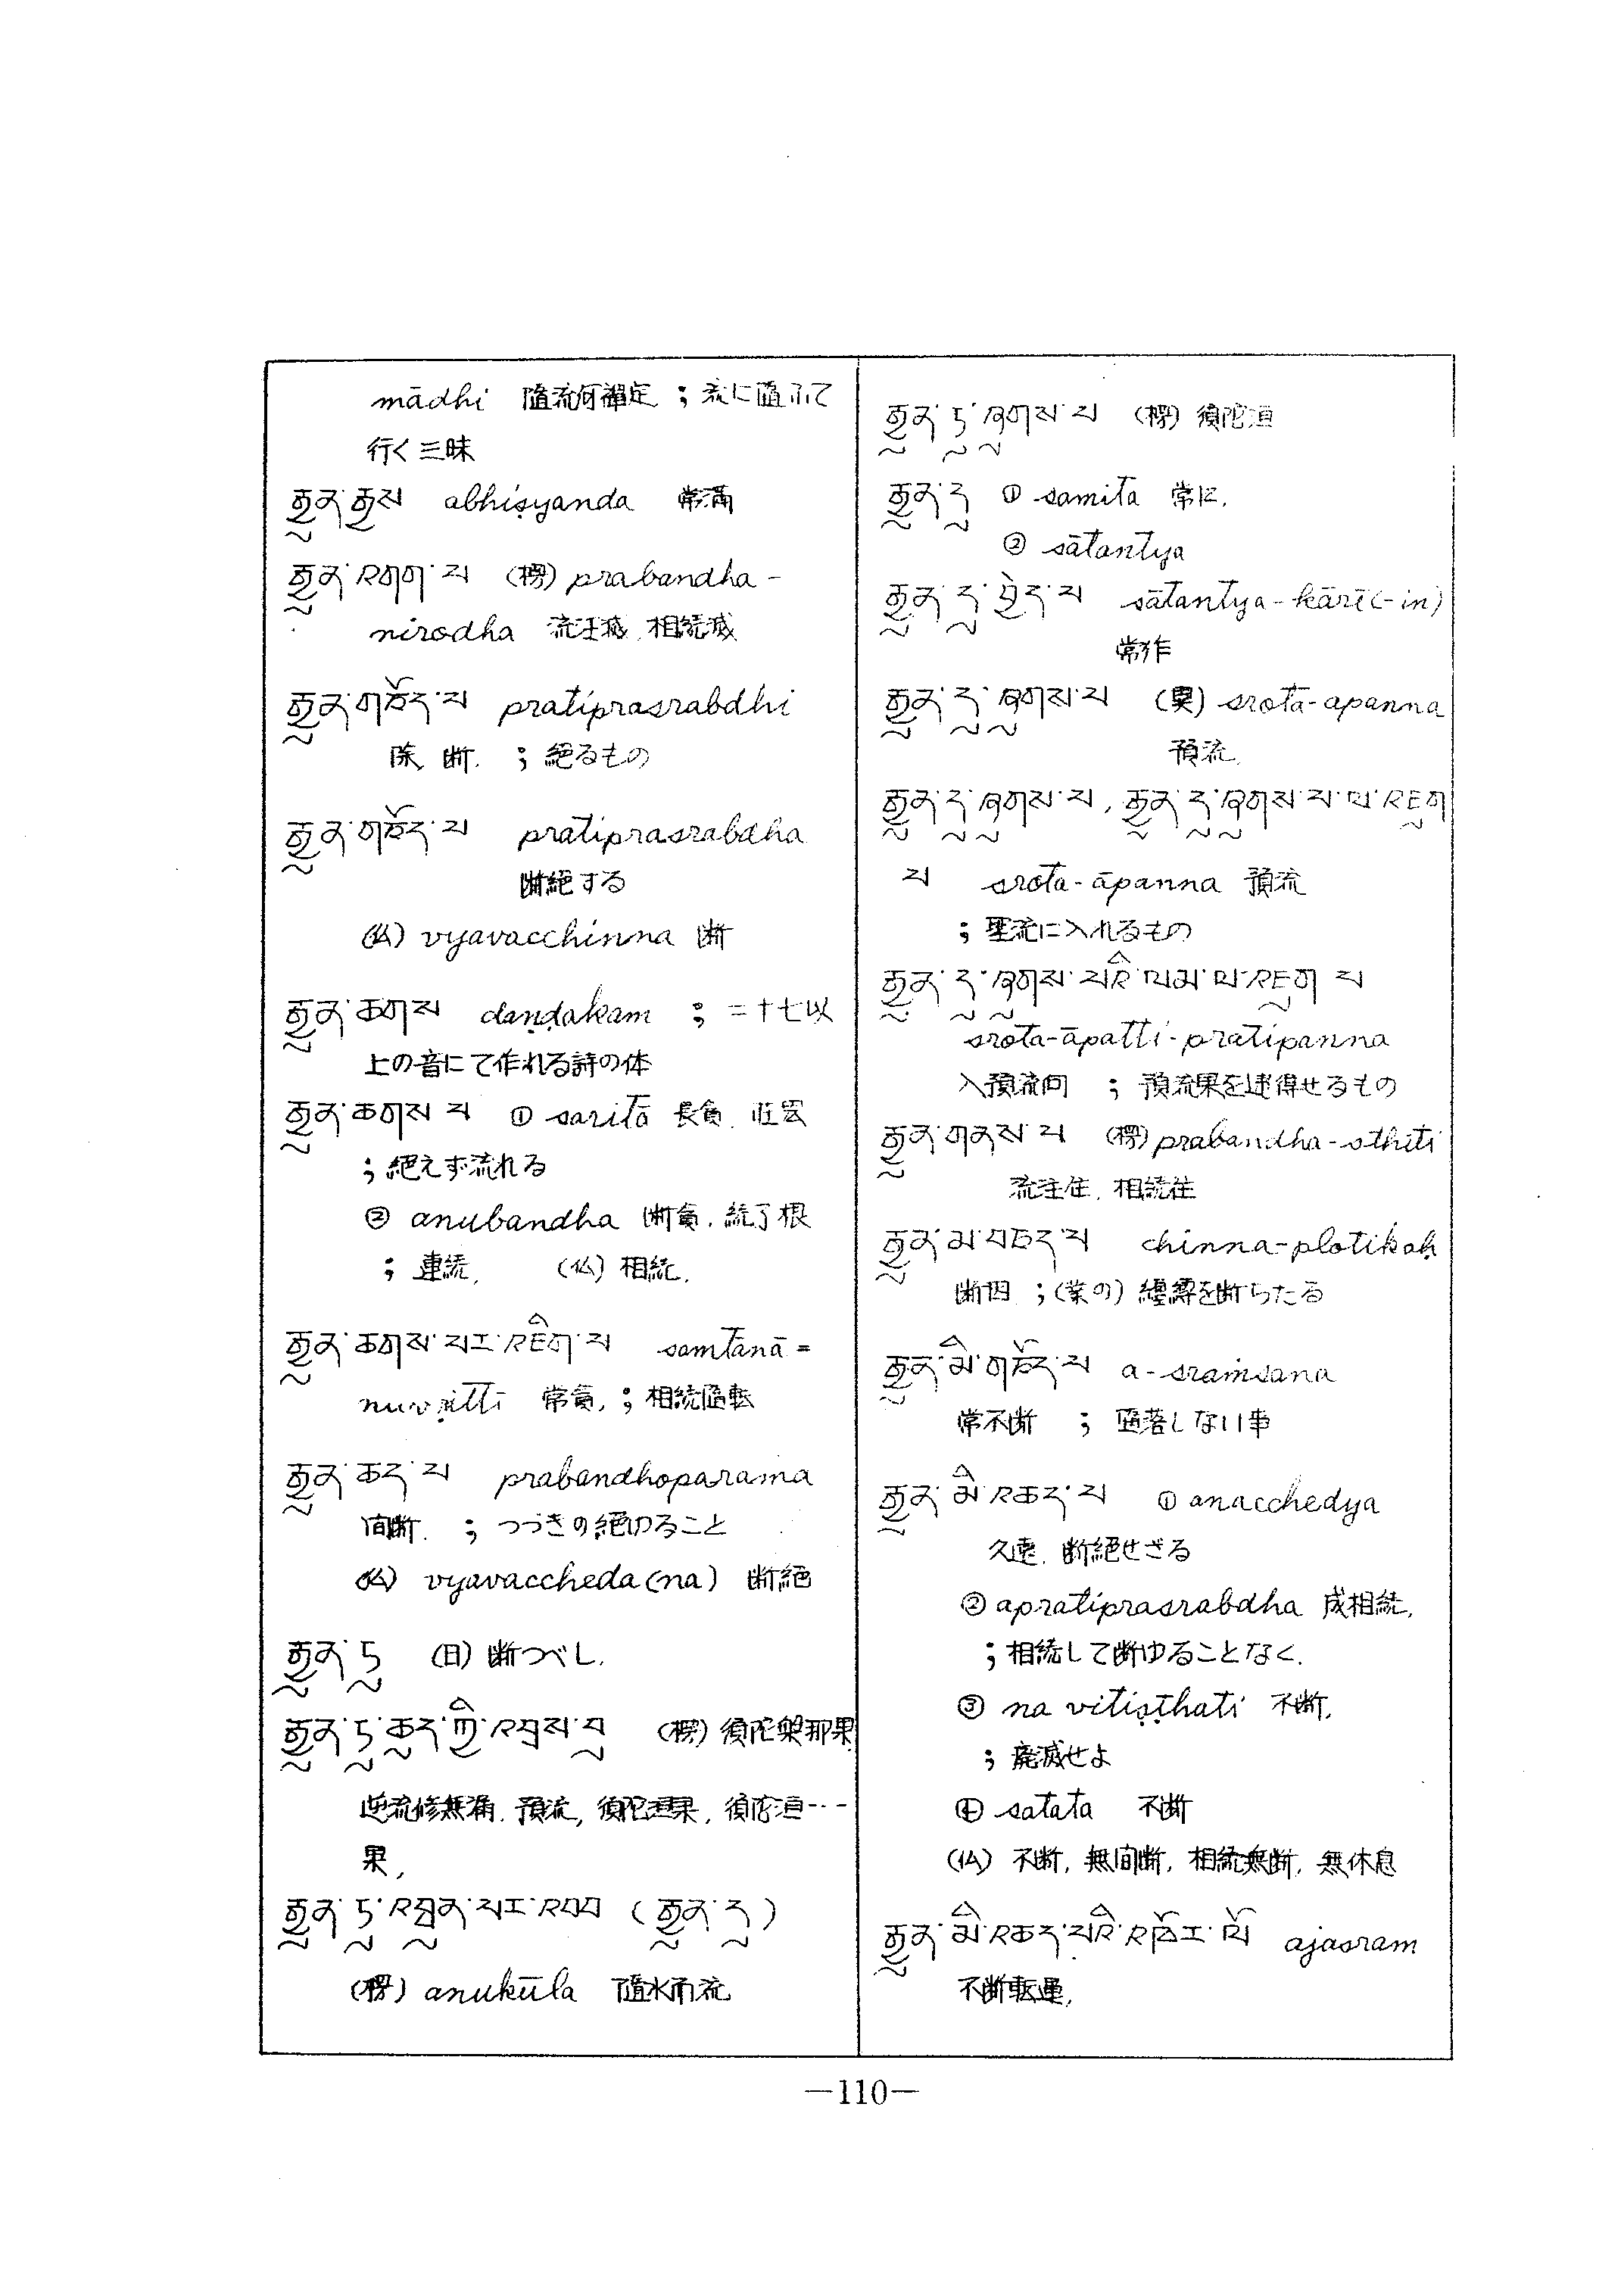 mādhi 隨流向禪定 ; 流に隨ふて
行く三昧
རྒྱུན་རྒྱས abhiṣyanda 常満
རྒྱུན་འགག་པ (楞) prabandha-
nirodha 流注滅, 相続滅
རྒྱུན་གཅོད་པ pratiprasrabdhi
除, 断. ; 絶るもの
རྒྱུན་གཅོད་པ pratiprasrabdha
断絶する
(仏) vyavacchinna 断
རྒྱུན་ཆགས daṇḍakam ; 二十七以
上の音にて作れる詩の体
རྒྱུན་ཆགས་པ ① saritā 長負, 荘
; 絶えず流れる
② anubandha 断負, 続了根
; 連続, (仏) 相続.
རྒྱུན་ཆགས་པར་འཇིག་པ samtānā=
nuvṛitti 常負, ; 相続随転
རྒྱུན་ཆད་པ prabandhoparama
間断. ; つづきの絶ゆること
(仏) vyavaccheda (na) 断絶
རྒྱུན་དུ (目) 断つべし.
རྒྱུན་དུ་ཆུད་ཀྱི་འབྲས་བུ (楞) 須陀槃那果
逆流修無漏, 預流, 須陀洹果, 須陀洹---
果,
རྒྱུན་དུ་འབྲུན་པར་འབབ (རྒྱུན་དུ)
(楞) anukūla 隨水而流
རྒྱུན་དུ་ཞུགས་པ (楞) 須陀洹
རྒྱུན་དུ ① samita 常に.
② sātantya
རྒྱུན་དུ་བྱེད་པ sātantya-kārī (-in)
常作
རྒྱུན་དུ་ཞུགས་པ (異) srota-apanna
預流.
རྒྱུན་དུ་ཞུགས་པ, རྒྱུན་དུ་ཞུགས་པ་ལ་འཇུག
པ srota-āpanna 預流
; 聖流に入れるもの
རྒྱུན་དུ་ཞུགས་པའི་ལམ་ལ་འཇུག་པ
srota-āpatti-pratipanna
入預流向 ; 預流果を逮得せるもの
རྒྱུན་གནས་པ (楞) prabandha-sthiti
流注住, 相続住
རྒྱུན་མ་བཅད་པ chinna-plotikaḥ
断 ; (業の) 纏縛を断ちたる
རྒྱུན་མི་གཅོད་པ a-sraṁsana
常不断 ; 墮落しない事
རྒྱུན་མི་འཆད་པ ① anacchedya
久遠, 断絶せざる
② apratiprasrabdha 成相続,
; 相続して断ゆることなく.
③ na vitiṣṭhati 不断,
; 廃滅せよ
④ satata 不断
(仏) 不断, 無間断, 相続無断, 無休息
རྒྱུན་མི་འཆད་པའི་འཁོར་ལོ ajasram
不断転運,
—110—